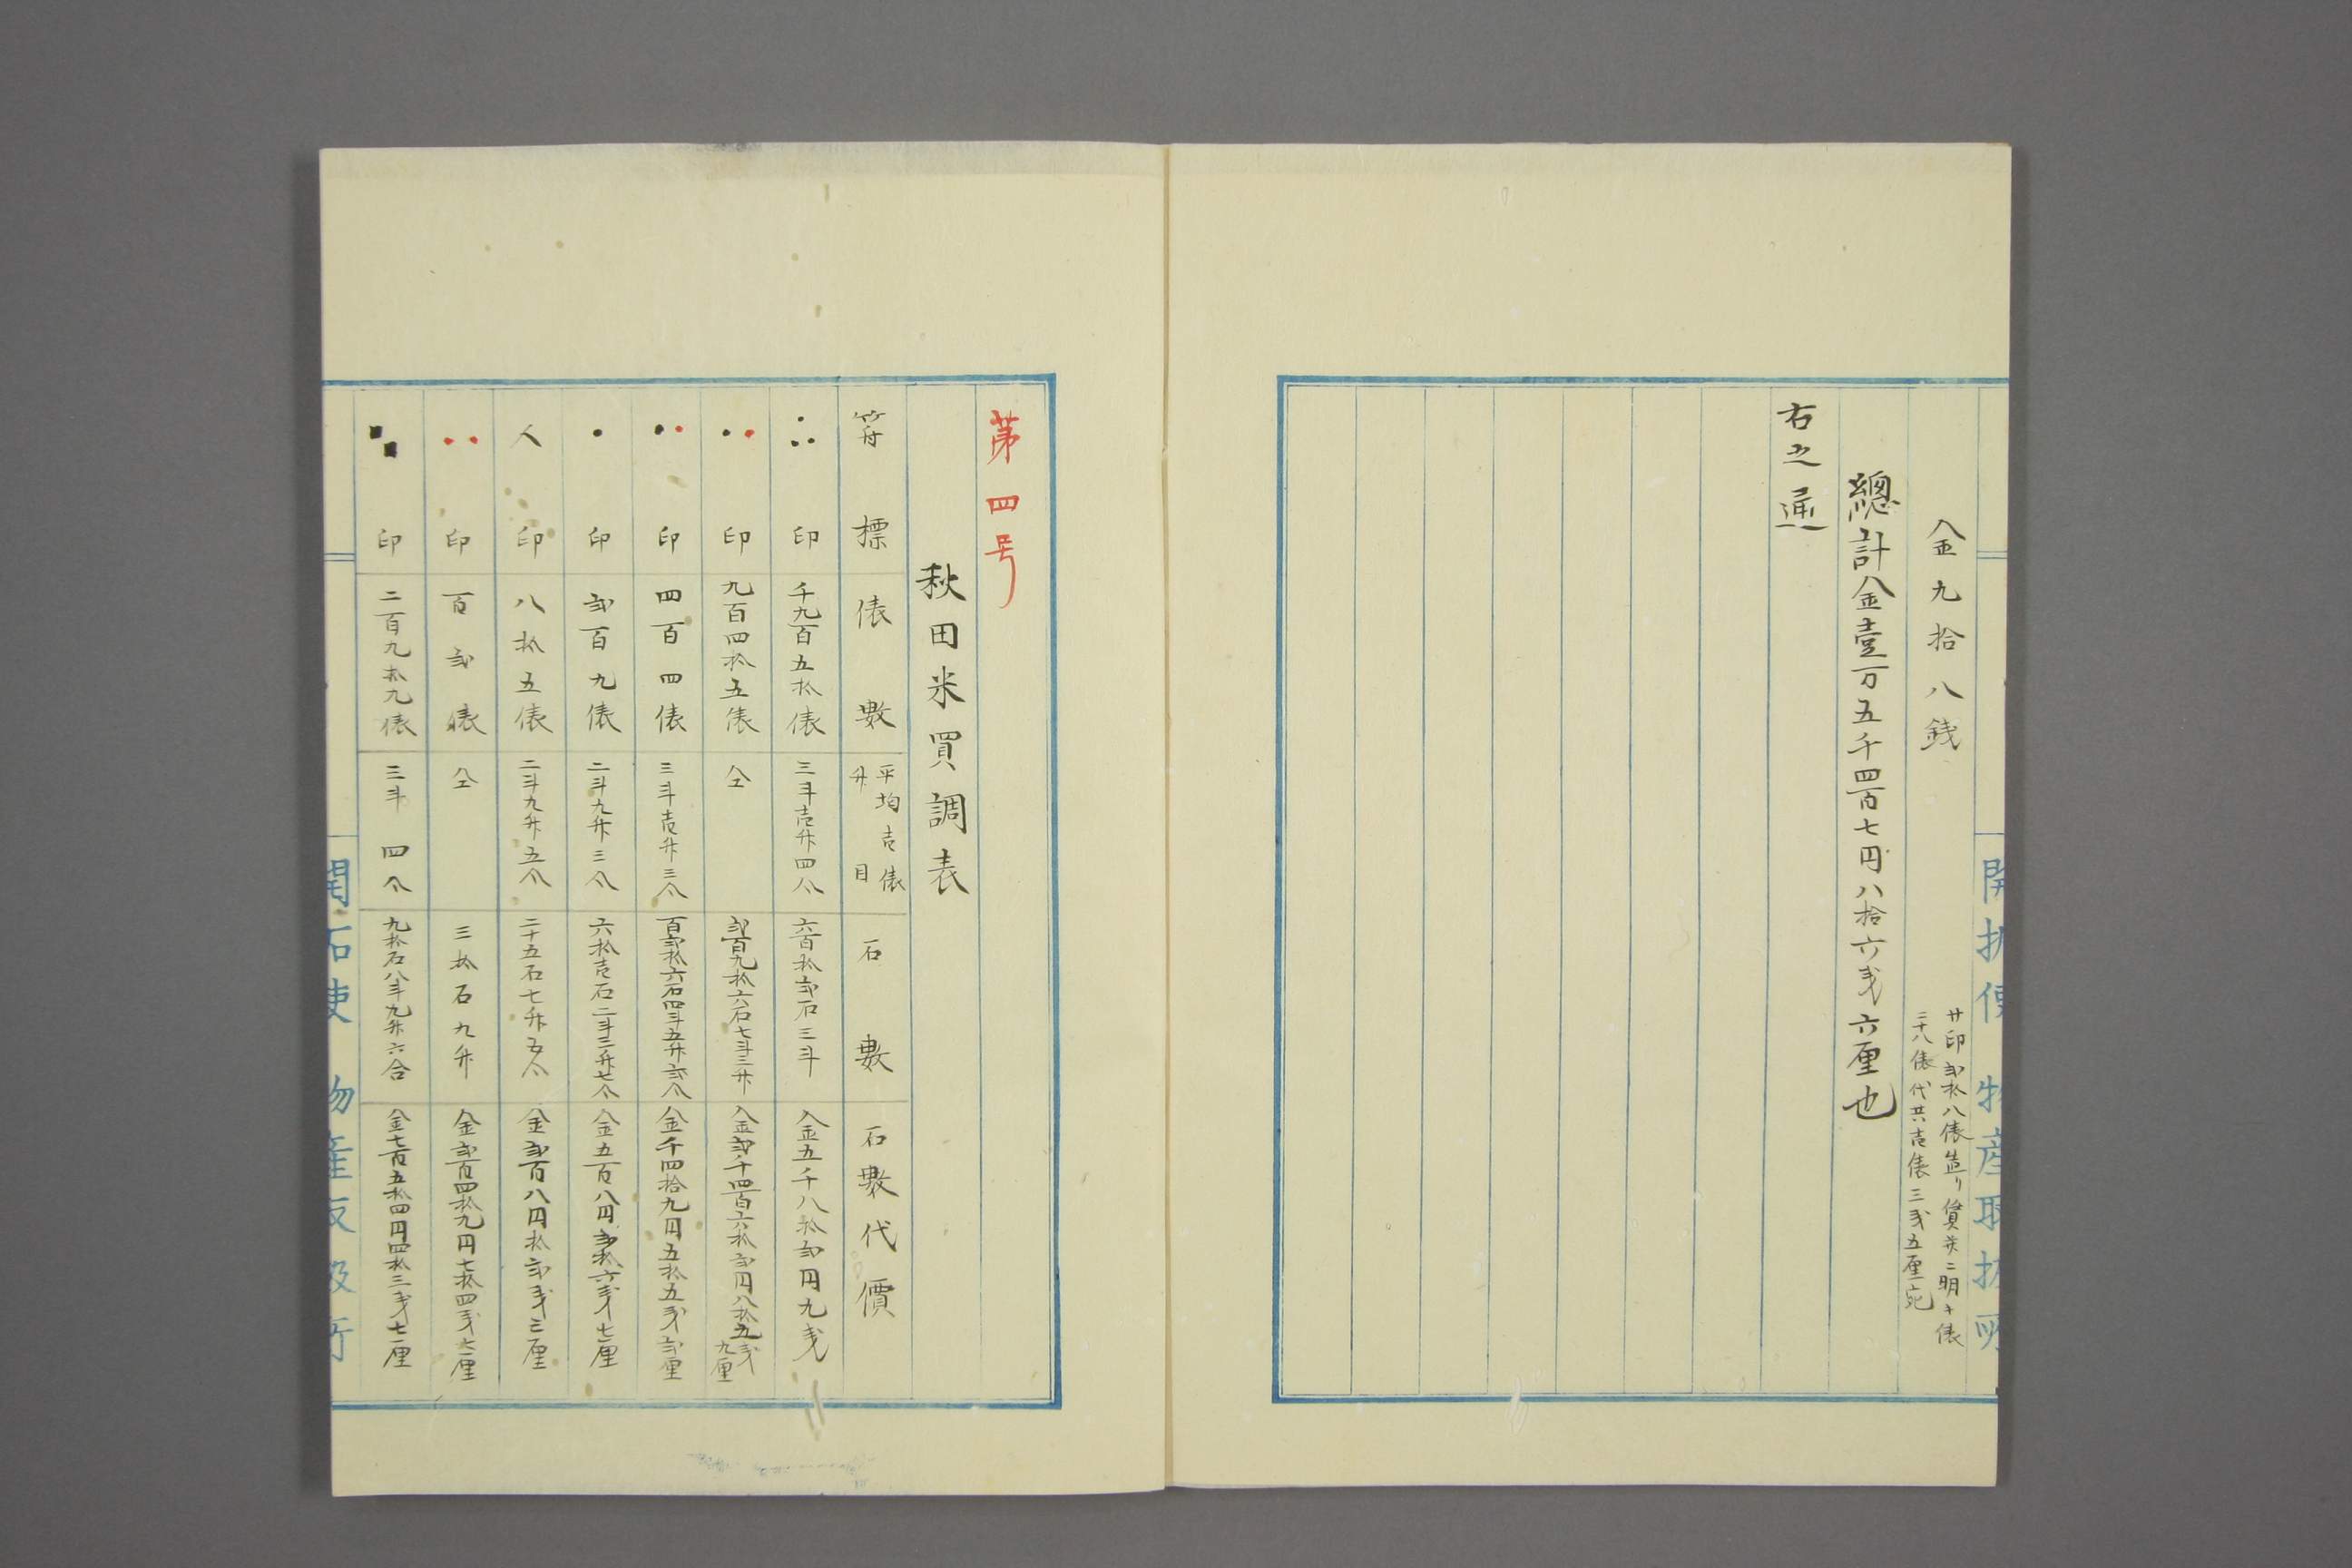 開拓使 物産取扱所
金九拾八銭
廿印弐拾八俵造リ賃并ニ明キ俵
三十八俵代共壱俵三戔五厘宛
總計金壹万五千四百七円八拾六戔六厘也
右之通
第四号
秋田米買調表
符標 俵數 平均壱俵升目 石數 石數代價
∴印 千九百五拾俵 三斗壱升四合 六百拾弐石三斗 金五千八拾弐円九戔
・・印 九百四拾五俵 仝 弐百九拾六石七斗三升 金弐千四百六拾弐円八拾九戔九厘
・・印 四百四俵 三斗壱升三合 百弐拾六石四斗五升弐合 金千四拾九円五拾五戔弐厘
・印 弐百九俵 二斗九升三合 六拾壱石二斗三升七合 金五百八円弐拾六戔七厘
人印 八拾五俵 二斗九升五合 二十五石七升五合 金弐百八円拾弐戔三厘
・・印 百弐俵 仝 三拾石九升 金弐百四拾九円七拾四戔七厘
印 二百九拾九俵 三斗四合 九拾石八斗九升六合 金七百五拾四円四拾三戔七厘
開拓使 物産取扱所